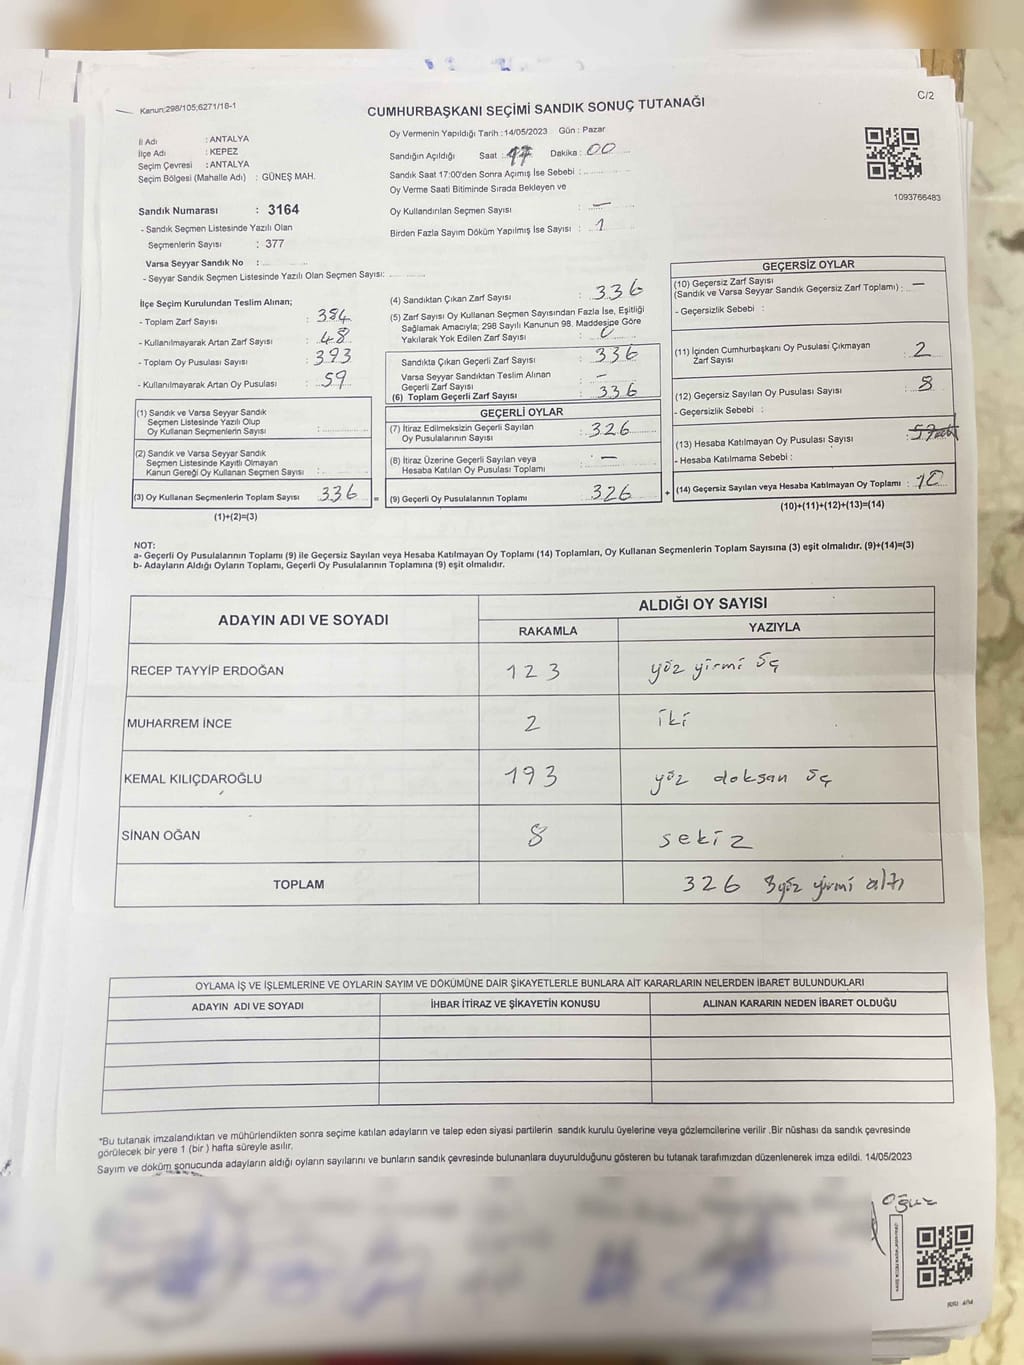 Kanun:298/105;6271/18-1
CUMHURBAŞKANI SEÇİMİ SANDIK SONUÇ TUTANAĞI
C/2
İl Adı : ANTALYA
İlçe Adı : KEPEZ
Seçim Çevresi : ANTALYA
Seçim Bölgesi (Mahalle Adı) : GÜNEŞ MAH.
Oy Vermenin Yapıldığı Tarih :14/05/2023 Gün : Pazar
Sandığın Açıldığı Saat : 17 Dakika : 00
Sandık Saat 17:00'den Sonra Açımış İse Sebebi :
Oy Verme Saati Bitiminde Sırada Bekleyen ve
Oy Kullandırılan Seçmen Sayısı : —
Birden Fazla Sayım Döküm Yapılmış İse Sayısı : 1
1093766483
Sandık Numarası : 3164
- Sandık Seçmen Listesinde Yazılı Olan
Seçmenlerin Sayısı : 377
Varsa Seyyar Sandık No :
- Seyyar Sandık Seçmen Listesinde Yazılı Olan Seçmen Sayısı:
İlçe Seçim Kurulundan Teslim Alınan;
- Toplam Zarf Sayısı : 384
- Kullanılmayarak Artan Zarf Sayısı : 48
- Toplam Oy Pusulası Sayısı : 393
- Kullanılmayarak Artan Oy Pusulası : 59
(1) Sandık ve Varsa Seyyar Sandık
Seçmen Listesinde Yazılı Olup
Oy Kullanan Seçmenlerin Sayısı :
(2) Sandık ve Varsa Seyyar Sandık
Seçmen Listesinde Kayıtlı Olmayan
Kanun Gereği Oy Kullanan Seçmen Sayısı :
(3) Oy Kullanan Seçmenlerin Toplam Sayısı 336 =
(1)+(2)=(3)
(4) Sandıktan Çıkan Zarf Sayısı : 336
(5) Zarf Sayısı Oy Kullanan Seçmen Sayısından Fazla İse, Eşitliği
Sağlamak Amacıyla; 298 Sayılı Kanunun 98. Maddesine Göre
Yakılarak Yok Edilen Zarf Sayısı :
Sandıkta Çıkan Geçerli Zarf Sayısı : 336
Varsa Seyyar Sandıktan Teslim Alınan
Geçerli Zarf Sayısı : —
(6) Toplam Geçerli Zarf Sayısı : 336
GEÇERLİ OYLAR
(7) İtiraz Edilmeksizin Geçerli Sayılan
Oy Pusulalarının Sayısı : 326
(8) İtiraz Üzerine Geçerli Sayılan veya
Hesaba Katılan Oy Pusulası Toplamı : —
(9) Geçerli Oy Pusulalarının Toplamı : 326 +
GEÇERSİZ OYLAR
(10) Geçersiz Zarf Sayısı
(Sandık ve Varsa Seyyar Sandık Geçersiz Zarf Toplamı) : —
- Geçersizlik Sebebi :
(11) İçinden Cumhurbaşkanı Oy Pusulası Çıkmayan
Zarf Sayısı : 2
(12) Geçersiz Sayılan Oy Pusulası Sayısı : 8
- Geçersizlik Sebebi :
(13) Hesaba Katılmayan Oy Pusulası Sayısı :
- Hesaba Katılmama Sebebi :
(14) Geçersiz Sayılan veya Hesaba Katılmayan Oy Toplamı : 10
(10)+(11)+(12)+(13)=(14)
NOT:
a- Geçerli Oy Pusulalarının Toplamı (9) ile Geçersiz Sayılan veya Hesaba Katılmayan Oy Toplamı (14) Toplamları, Oy Kullanan Seçmenlerin Toplam Sayısına (3) eşit olmalıdır. (9)+(14)=(3)
b- Adayların Aldığı Oyların Toplamı, Geçerli Oy Pusulalarının Toplamına (9) eşit olmalıdır.
ADAYIN ADI VE SOYADI
ALDIĞI OY SAYISI
RAKAMLA YAZIYLA
RECEP TAYYİP ERDOĞAN 123 yüz yirmi üç
MUHARREM İNCE 2 iki
KEMAL KILIÇDAROĞLU 193 yüz doksan üç
SİNAN OĞAN 8 sekiz
TOPLAM 326 3yüz yirmi altı
OYLAMA İŞ VE İŞLEMLERİNE VE OYLARIN SAYIM VE DÖKÜMÜNE DAİR ŞİKAYETLERLE BUNLARA AİT KARARLARIN NELERDEN İBARET BULUNDUKLARI
ADAYIN ADI VE SOYADI İHBAR İTİRAZ VE ŞİKAYETİN KONUSU ALINAN KARARIN NEDEN İBARET OLDUĞU
*Bu tutanak imzalandıktan ve mühürlendikten sonra seçime katılan adayların ve talep eden siyasi partilerin sandık kurulu üyelerine veya gözlemcilerine verilir .Bir nüshası da sandık çevresinde
görülecek bir yere 1 (bir ) hafta süreyle asılır.
Sayım ve döküm sonucunda adayların aldığı oyların sayılarını ve bunların sandık çevresinde bulunanlara duyurulduğunu gösteren bu tutanak tarafımızdan düzenlenerek imza edildi. 14/05/2023
Oğuz